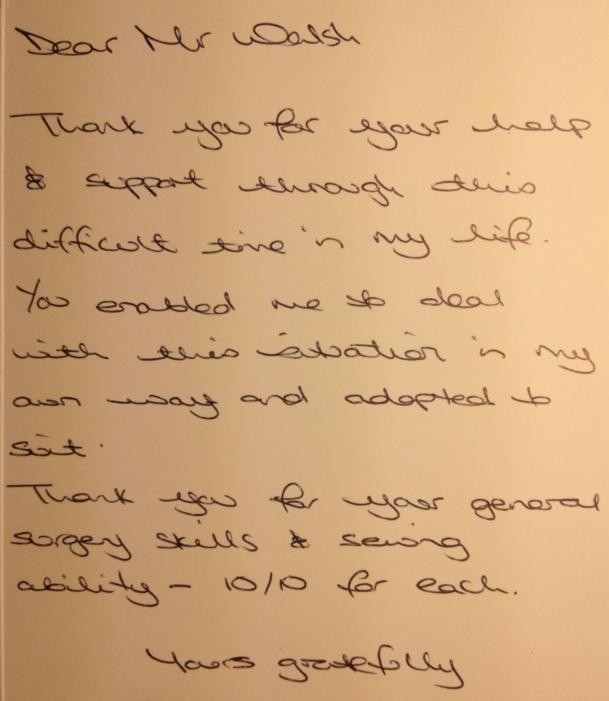 Dear Mr Walsh
Thank you for your help
& support through this
difficult time in my life.
You enabled me to deal
with this situation in my
own way and adapted to
suit.
Thank you for your general
surgery skills & sewing
ability - 10/10 for each.
Yours gratefully